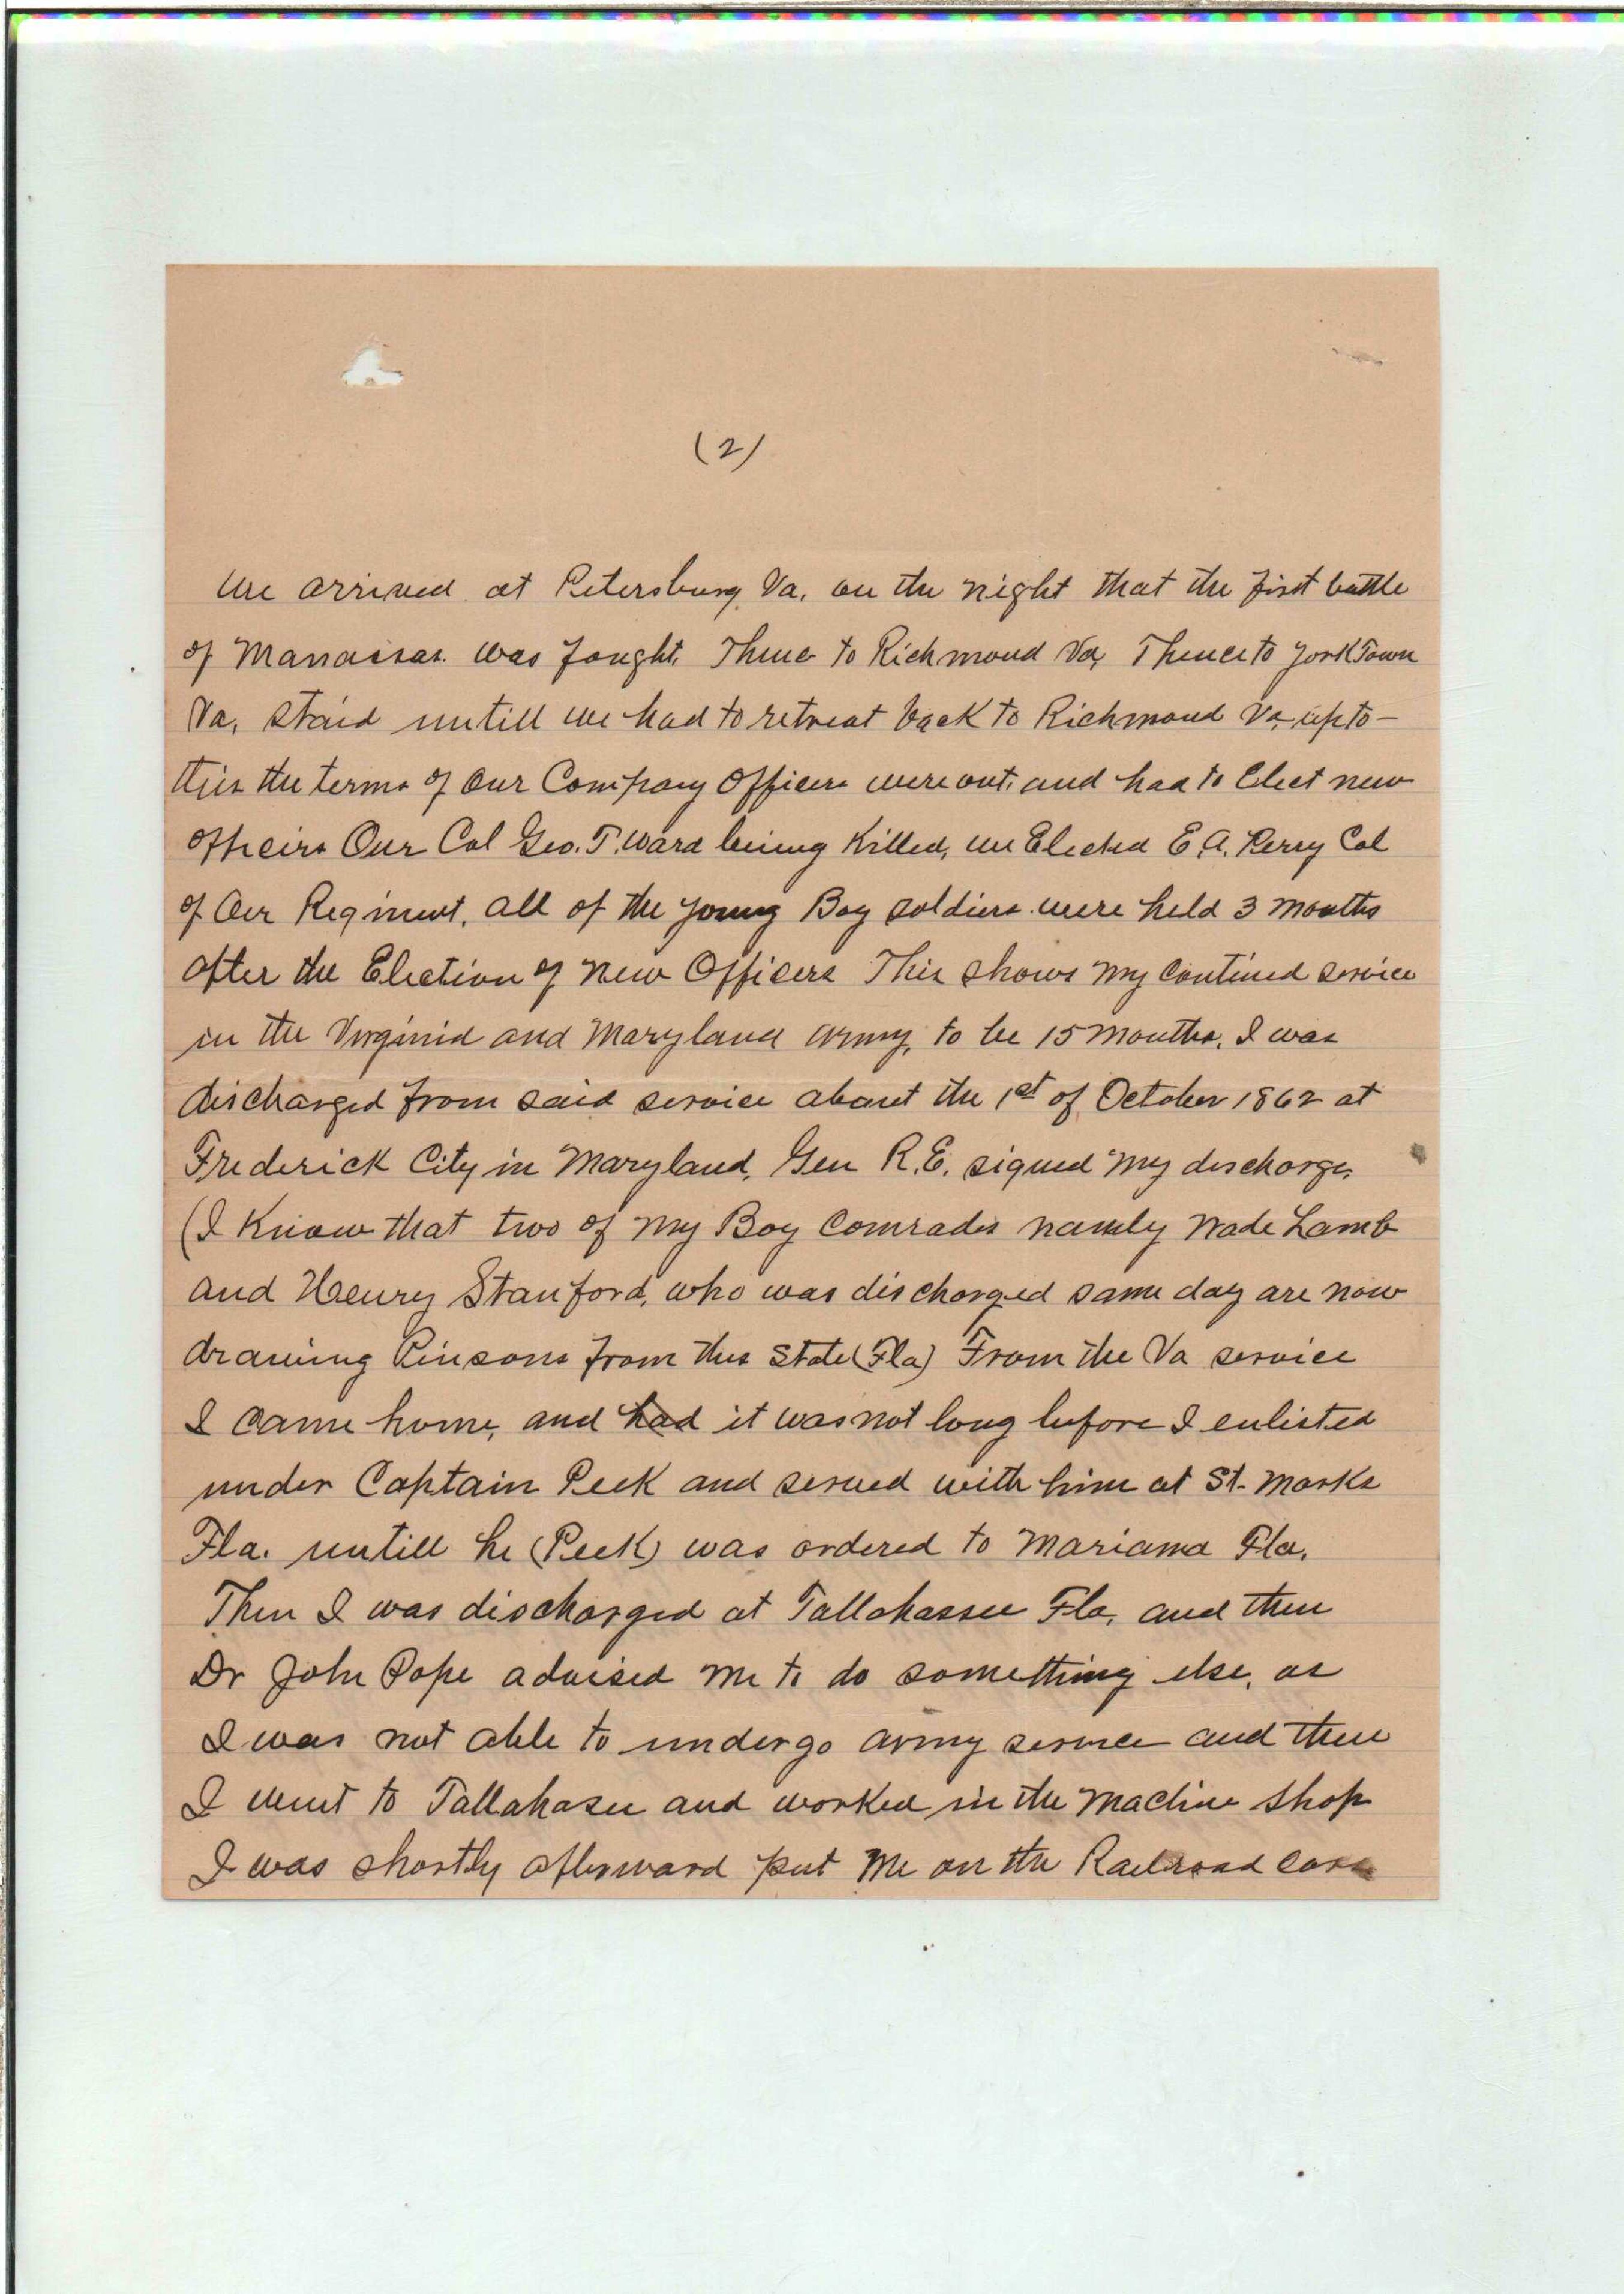 (2)
We arrived at Petersburg, Va. on the night that the first battle
of Manassas. was fought. Thence to Richmond Va, Thence to YorkTown
Va, staid untill we had to retreat back to Richmond Va, up to –
this the terms of our Company Officers were out, and had to Elect new
officirs Our Col Geo. T. Ward being Killed, we Elected E. A. Perry Col
of Our Regiment. All of the young Boy soldiers were held 3 months
after the Election of New Officers This shows my Contined service
in the Virginia and Maryland army, to be 15 months. I was
discharged from said service about the 1st of October 1862 at
Frederick City in Maryland, Gen R.E. signed my discharge,
(I Know that two of my Boy Comrades namely Wade Lamb
and Henry Stanford, who was discharged same day are now
drawing Pinsons from this State (Fla) From the Va service
I came home, and had it was not long before I enlisted
under Captain Peek and served with him at St. Marks
Fla. untill he (Peek) was ordered to Mariana Fla.
Then I was discharged at Tallahassee Fla, and then
Dr John Pope advised me to do something else, as
I was not able to undergo army service and then
I went to Tallahasee and worked in the Machine Shop
I was shortly afterward put me on the Railroad Cars